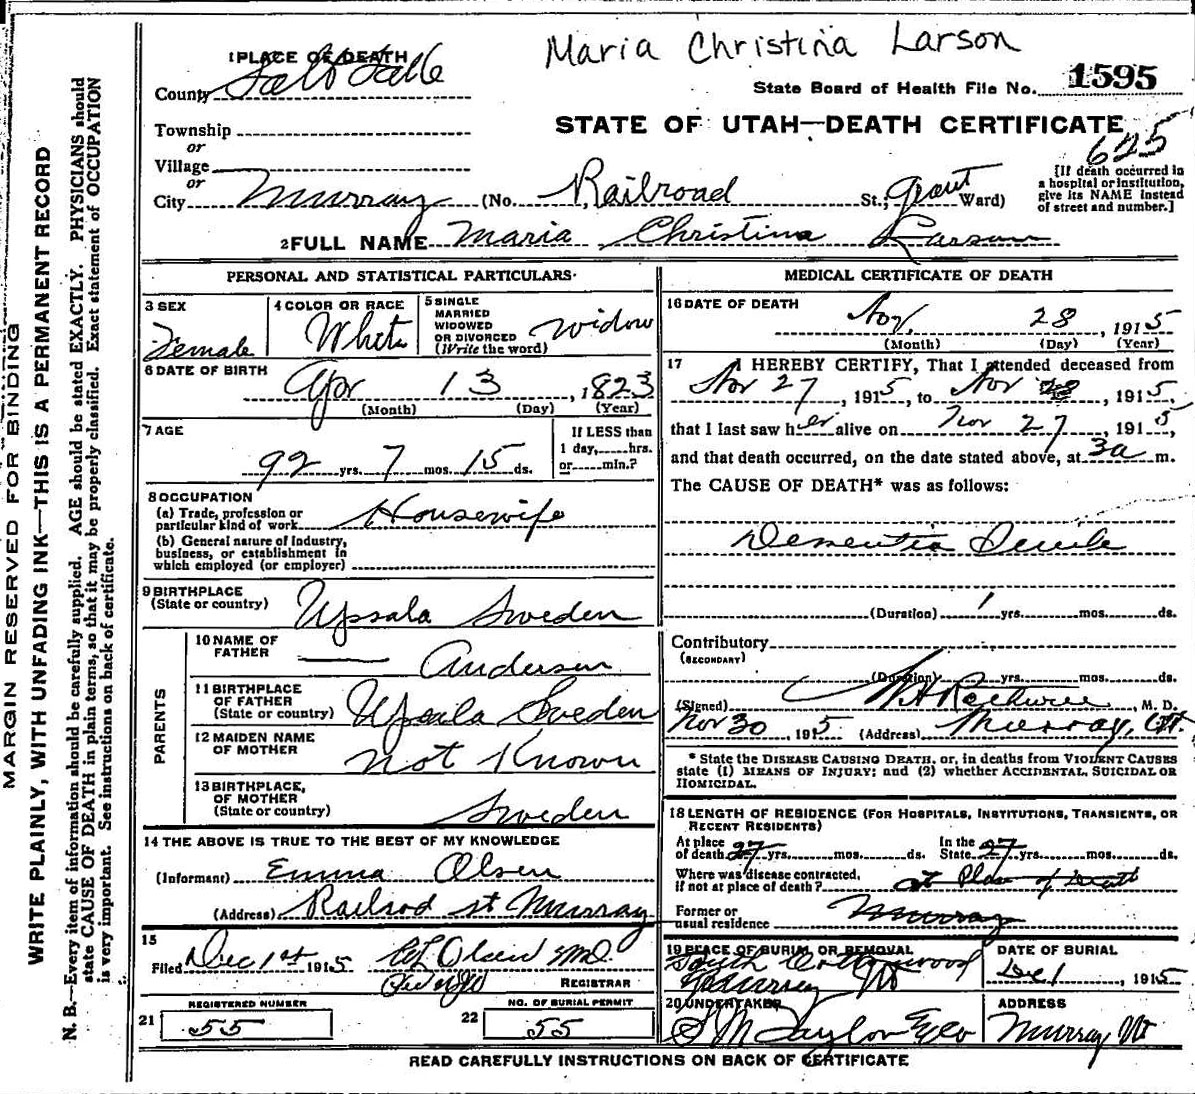 Maria Christina Larson
1 PLACE OF DEATH
County Salt Lake
State Board of Health File No. 1595
STATE OF UTAH—DEATH CERTIFICATE
625
Township
or
Village
or
City Murray (No. Railroad St.; Grant Ward)
[If death occurred in
a hospital or institution,
give its NAME instead
of street and number.]
2 FULL NAME Maria Christina Larson
PERSONAL AND STATISTICAL PARTICULARS
3 SEX
Female
4 COLOR OR RACE
White
5 SINGLE
MARRIED
WIDOWED
OR DIVORCED
(Write the word)
Widow
6 DATE OF BIRTH
Apr 13, 1823
(Month) (Day) (Year)
7 AGE
92 yrs. 7 mos. 15 ds.
If LESS than
1 day, hrs.
or min.?
8 OCCUPATION
(a) Trade, profession or
particular kind of work Housewife
(b) General nature of Industry,
business, or establishment in
which employed (or employer)
9 BIRTHPLACE
(State or country) Upsala Sweden
PARENTS
10 NAME OF
FATHER — Andersen
11 BIRTHPLACE
OF FATHER
(State or country) Upsala Sweden
12 MAIDEN NAME
OF MOTHER not Known
13 BIRTHPLACE,
OF MOTHER
(State or country) Sweden
14 THE ABOVE IS TRUE TO THE BEST OF MY KNOWLEDGE
(Informant) Emma Olsen
(Address) Railrod st Murray
15
Filed Dec 1st 1915 Olsen MD.
REGISTRAR
21 REGISTERED NUMBER
55
22 NO. OF BURIAL PERMIT
55
MEDICAL CERTIFICATE OF DEATH
16 DATE OF DEATH
Nov. 28, 1915
(Month) (Day) (Year)
17 I HEREBY CERTIFY, That I attended deceased from
Nov 27, 1915, to Nov 28, 1915,
that I last saw her alive on Nov 27, 1915,
and that death occurred, on the date stated above, at 3a m.
The CAUSE OF DEATH* was as follows:
Dementia Senile
(Duration) 1 yrs. mos. ds.
Contributory
(SECONDARY)
(Duration) yrs. mos. ds.
(Signed) M. D.
Nov 30, 1915 (Address) Murray, Ut.
* State the DISEASE CAUSING DEATH, or, in deaths from VIOLENT CAUSES
state (1) MEANS OF INJURY; and (2) whether ACCIDENTAL, SUICIDAL OR
HOMICIDAL.
18 LENGTH OF RESIDENCE (FOR HOSPITALS, INSTITUTIONS, TRANSIENTS, OR
RECENT RESIDENTS)
At place
of death 27 yrs. mos. ds.
In the
State 27 yrs. mos. ds.
Where was disease contracted,
if not at place of death? at Place of Death
Former or
usual residence Murray
19 PLACE OF BURIAL OR REMOVAL
South Cottonwood
Murray Ut
DATE OF BURIAL
Dec 1, 1915
20 UNDERTAKER
S M Taylor & Co
ADDRESS
Murray Ut
READ CAREFULLY INSTRUCTIONS ON BACK OF CERTIFICATE
MARGIN RESERVED FOR BINDING
WRITE PLAINLY, WITH UNFADING INK—THIS IS A PERMANENT RECORD
N. B.—Every item of information should be carefully supplied. AGE should be stated EXACTLY. PHYSICIANS should
state CAUSE OF DEATH in plain terms, so that it may be properly classified. Exact statement of OCCUPATION
is very important. See instructions on back of certificate.